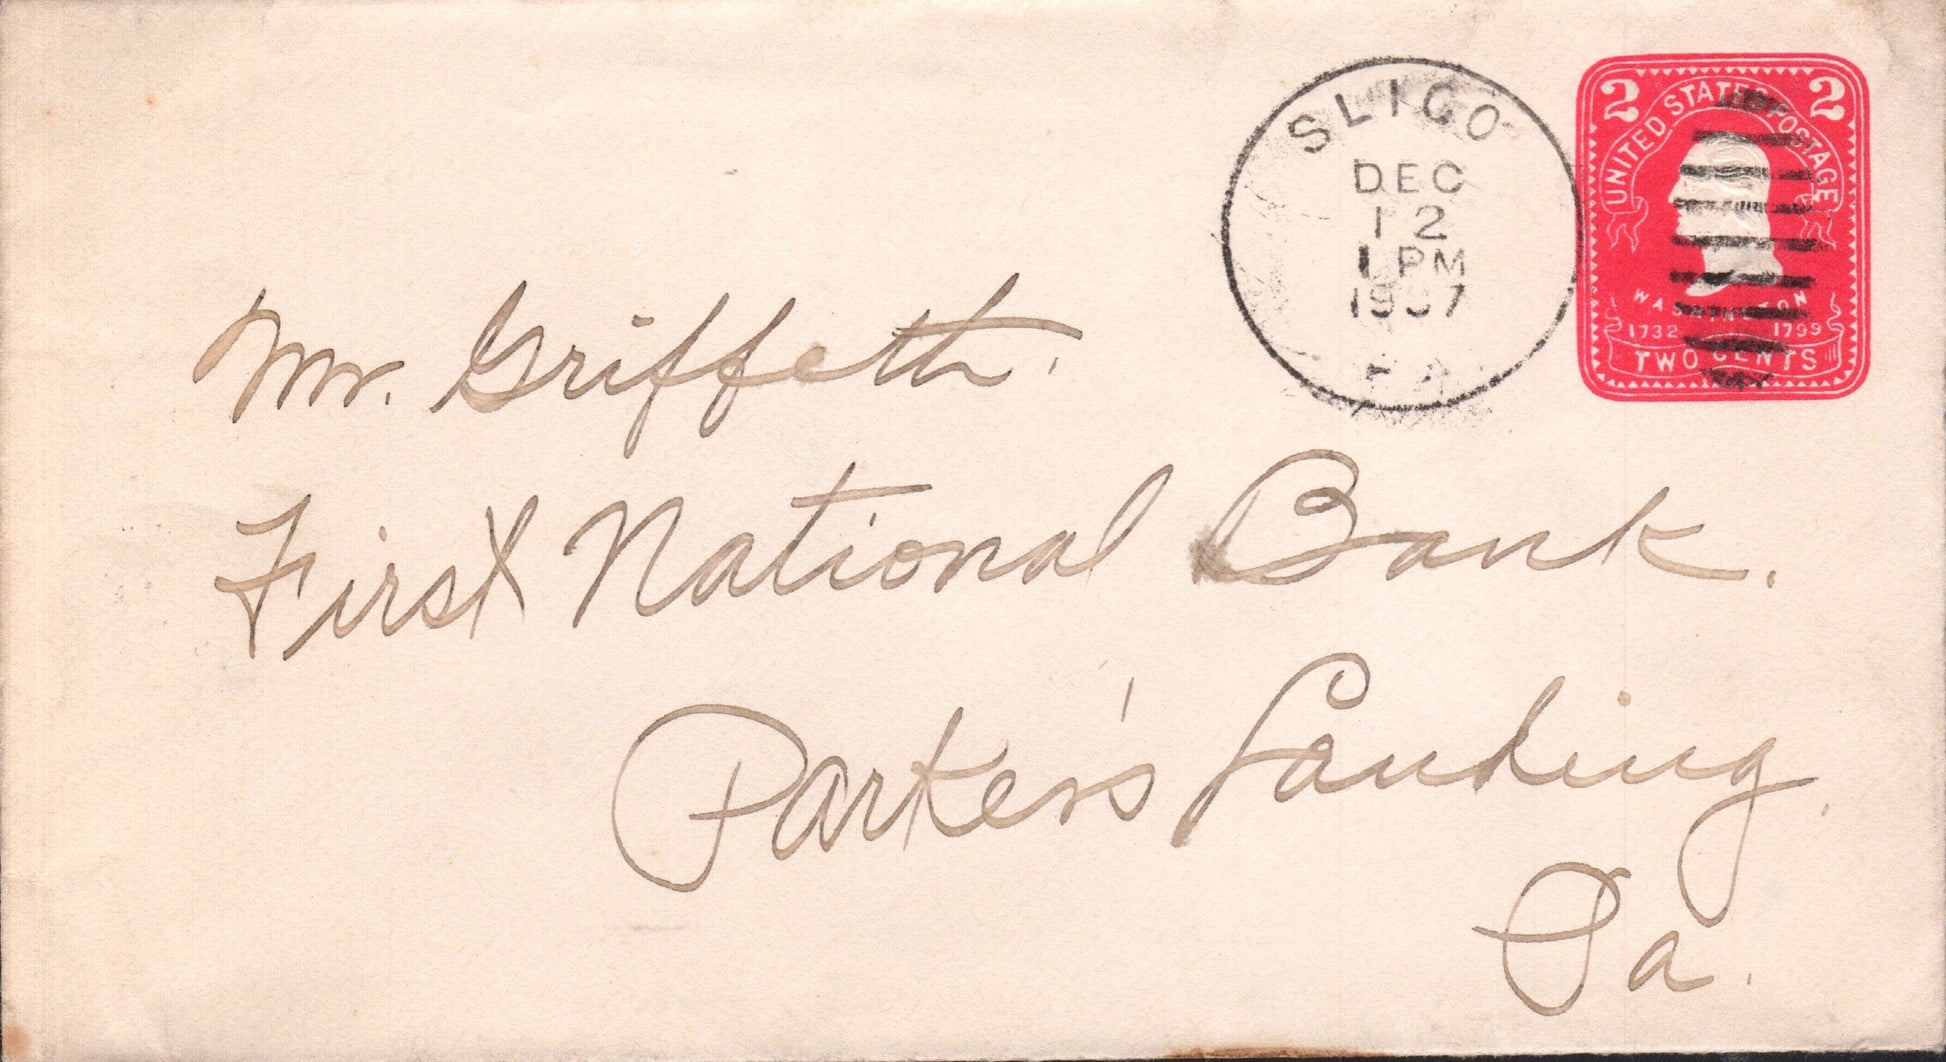 SLIGO
DEC
12
1 PM
1907
PA
2 2
UNITED STATES POSTAGE
WASHINGTON
1732 1799
TWO CENTS
Mr. Griffeth.
First National Bank.
Parker's Landing.
Pa.